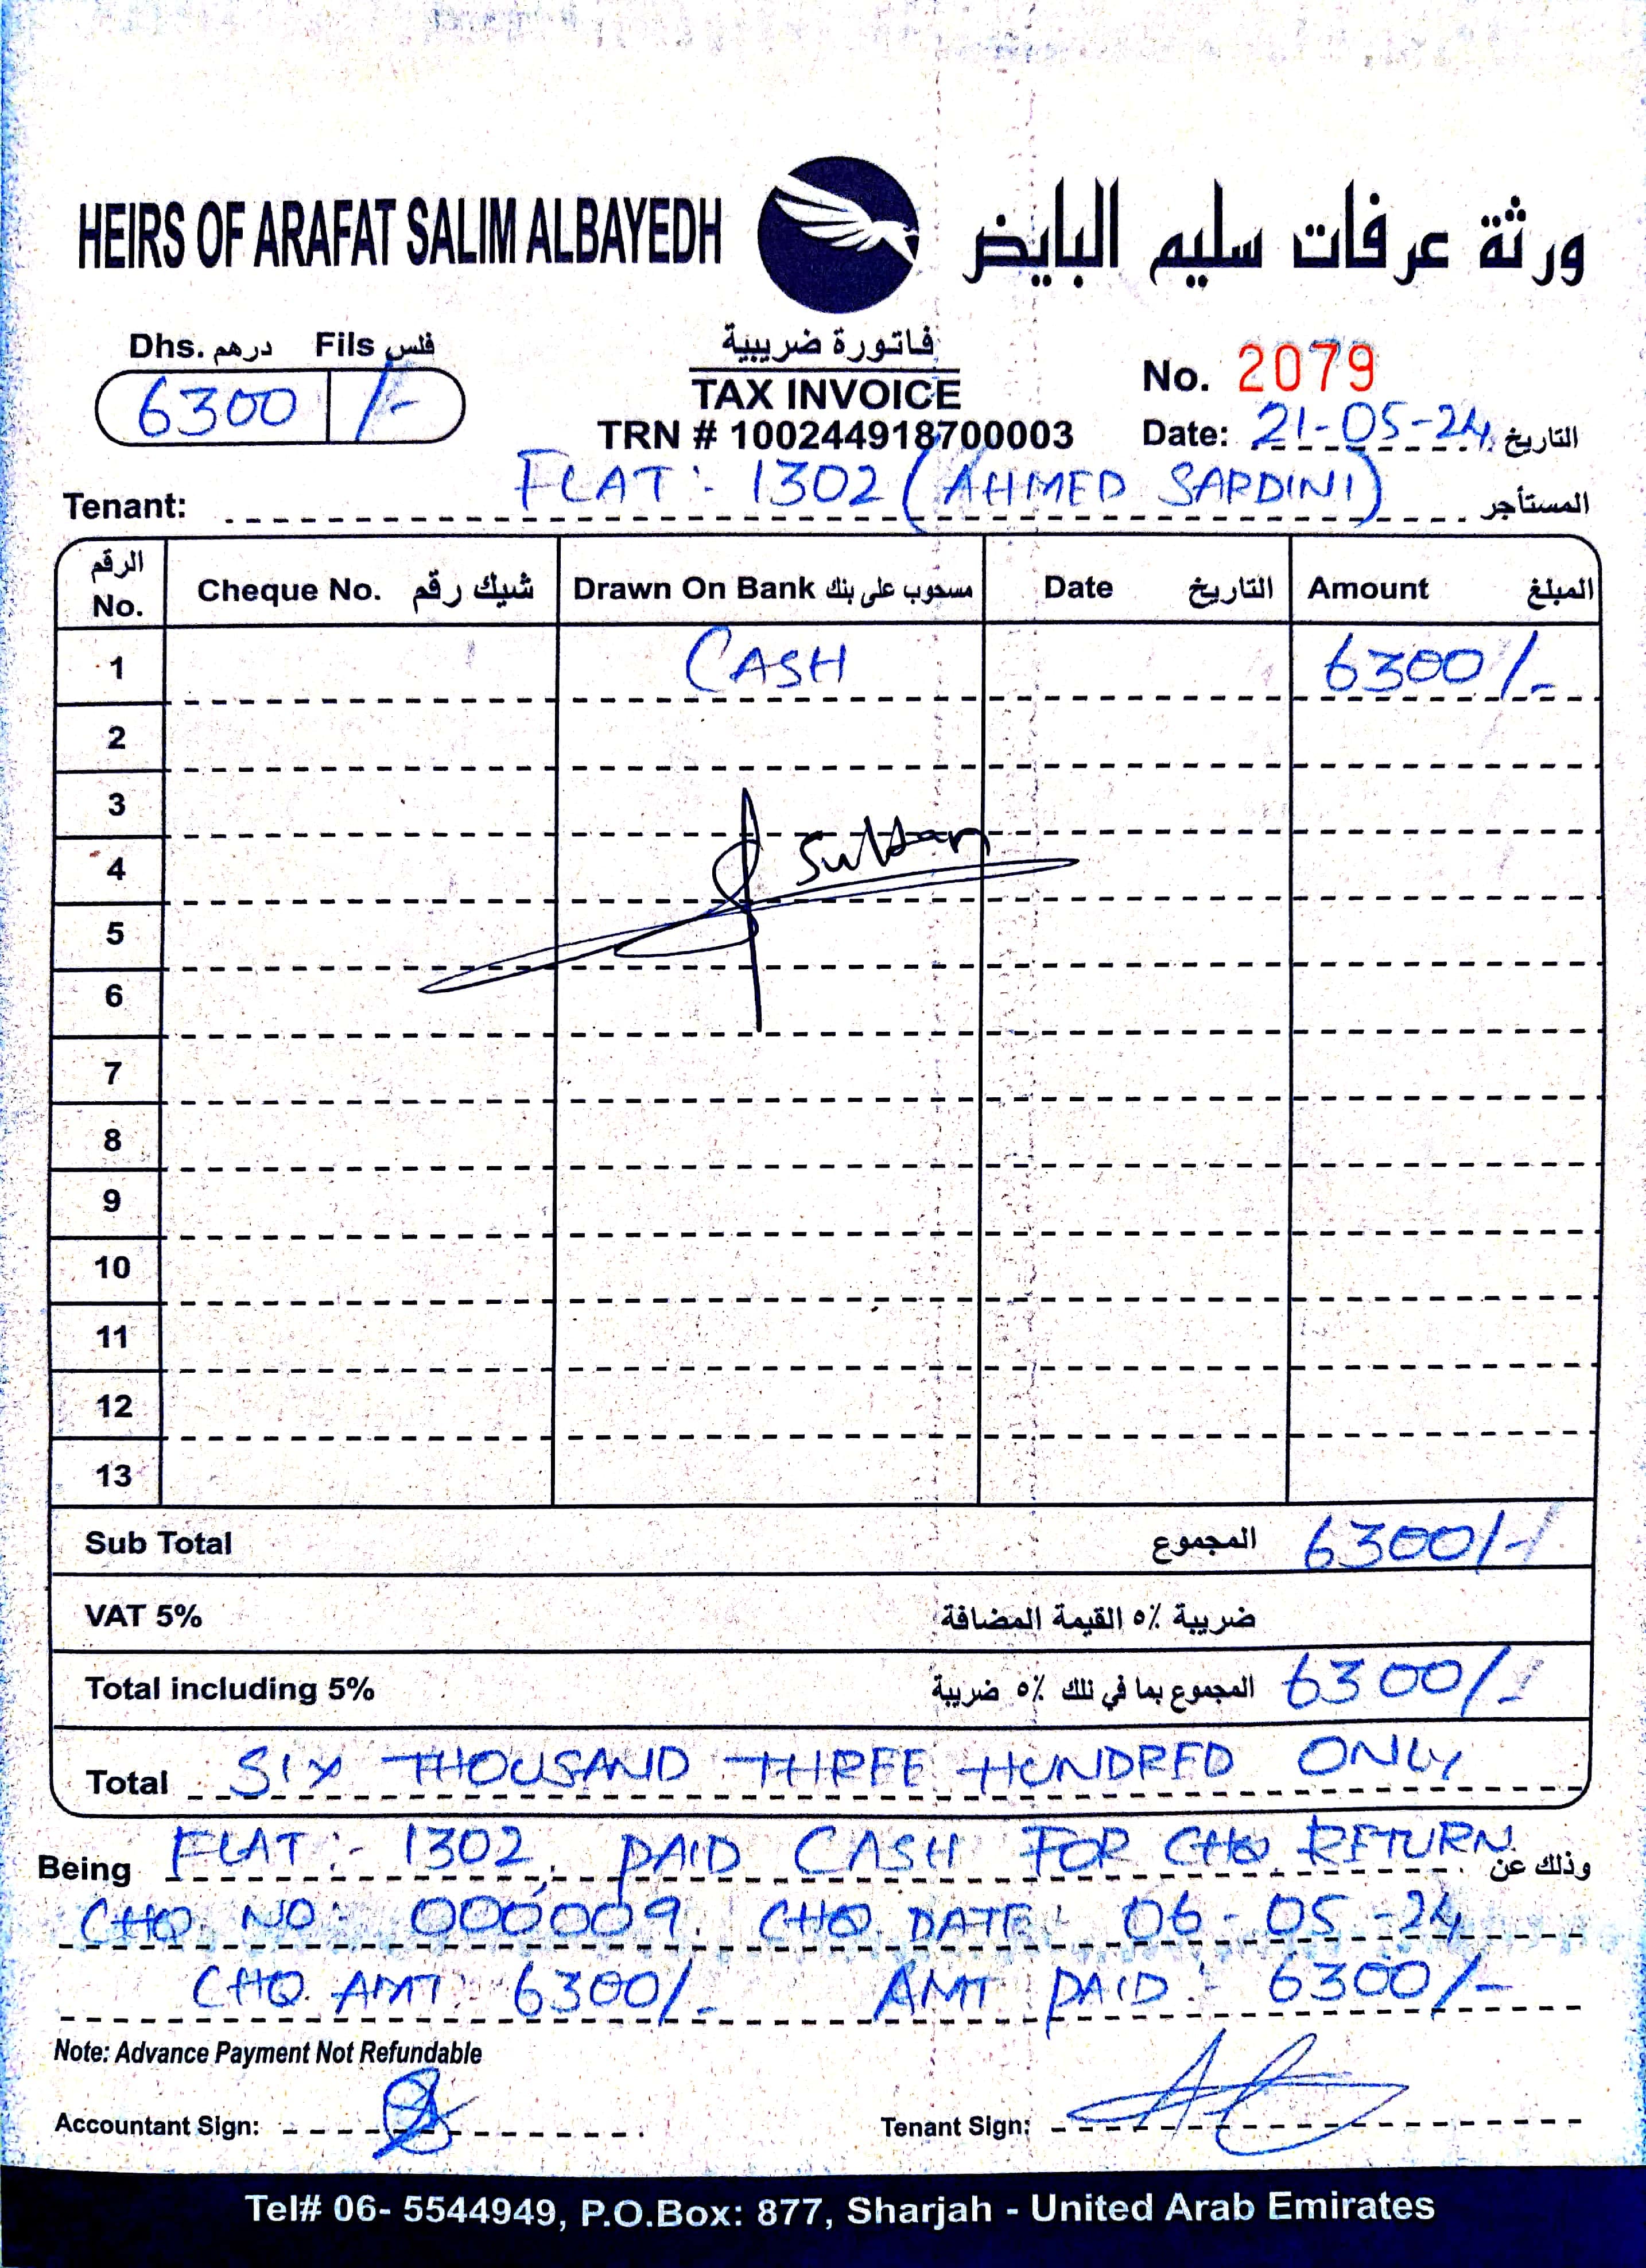 HEIRS OF ARAFAT SALIM ALBAYEDH ورثة عرفات سليم البايض
Dhs. درهم Fils فلس
6300 /-
فاتورة ضريبية
TAX INVOICE
TRN # 100244918700003
No. 2079
Date: 21-05-24 التاريخ
Tenant: FLAT: 1302 (AHMED SARDINI) المستأجر
الرقم No. Cheque No. شيك رقم Drawn On Bank مسحوب على بنك Date التاريخ Amount المبلغ
1 CASH 6300/-
2
3
4 Sultan
5
6
7
8
9
10
11
12
13
Sub Total المجموع 6300/-
VAT 5% ضريبة ٥٪ القيمة المضافة
Total including 5% المجموع بما في ذلك ٥٪ ضريبة 6300/-
Total SIX THOUSAND THREE HUNDRED ONLY
Being FLAT:- 1302, PAID CASH FOR CHQ. RETURN. وذلك عن
CHQ. NO:- 000009. CHQ. DATE:- 06-05-24
CHQ. AMT: 6300/- AMT PAID:- 6300/-
Note: Advance Payment Not Refundable
Accountant Sign: Tenant Sign:
Tel# 06- 5544949, P.O.Box: 877, Sharjah - United Arab Emirates